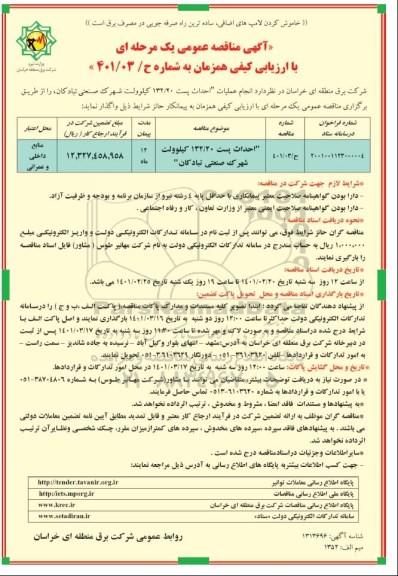 (( خاموش کردن لامپ های اضافی، ساده ترین راه صرفه جویی در مصرف برق است ))
«آگهی مناقصه عمومی یک مرحله ای
با ارزیابی کیفی همزمان به شماره ح/ ۴۰۱/۰۳ »
شرکت برق منطقه ای خراسان در نظردارد انجام عملیات "احداث پست ۱۳۲/۲۰ کیلوولت شهرک صنعتی تبادکان، را از طریق
برگزاری مناقصه عمومی یک مرحله ای با ارزیابی کیفی همزمان به پیمانکار حائز شرایط ذیل واگذار نماید:
شماره فراخوان درسامانه ستاد
شماره مناقصه
موضوع مناقصه
مدت پیمان
مبلغ تضمین شرکت در فرآیند ارجاع کار ( ریال)
محل اعتبار
ح/۴۰۱/۰۳
"احداث پست ۱۳۲/۲۰ کیلوولت شهرک صنعتی تبادکان"
۱۲ ماه
۱۲,۳۲۷,۴۵۸,۹۵۸
منابع داخلی و عمرانی
*شرایط لازم جهت شرکت در مناقصه:
- دارا بودن گواهینامه صلاحیت معتبر پیمانکاری با حداقل پایه ۴ رشته نیرو از سازمان برنامه و بودجه و ظرفیت آزاد.
- دارا بودن گواهینامه صلاحیت ایمنی معتبر از وزارت تعاون ، کار و رفاه اجتماعی.
*نحوه دریافت اسناد مناقصه:
مناقصه گران حائز شرایط فوق، می توانند پس از ثبت نام در سامانه تدارکات الکترونیکی دولت و واریز الکترونیکی مبلغ
۱,۰۰۰,۰۰۰ ریال به حساب مندرج در سامانه تدارکات الکترونیکی دولت به نام شرکت مهانیر طوس ( مشاور) فایل اسناد مناقصه
را بارگیری نمایند.
*تاریخ دریافت اسناد مناقصه:
از ساعت ۱۲ روز سه شنبه تاریخ ۱۴۰۱/۰۲/۲۰ تا ساعت ۱۹ روز یک شنبه تاریخ ۱۴۰۱/۰۲/۲۵ می باشد.
*تاریخ بارگذاری اسناد مناقصه و محل تحویل پاکت تضمین:
از پیشنهاد دهندگان تقاضا می گردد : ابتدا تصویر کلیه مستندات و مدارک پاکات مناقصه( پاکت الف ،ب و ج ) را درسامانه
تدارکات الکترونیکی دولت حداکثر تا ساعت ۱۳:۰۰ روز دو شنبه به تاریخ ۱۴۰۱/۰۳/۱۶ بارگذاری نمایند و اصل پاکت الف با
شرایط درج شده دراسناد مناقصه و به صورت لاک و مهر شده تا ساعت ۱۰:۳۰ روز سه شنبه به تاریخ ۱۴۰۱/۰۳/۱۷ پس از ثبت
در دبیرخانه شرکت برق منطقه ای خراسان به آدرس:مشهد - انتهای بلوار وکیل آباد - نرسیده به جاده شاندیز – سمت راست -
به امور تدارکات و قراردادها
*تاریخ و محل گشایش پاکات: ساعت ۱۲:۰۰ روز سه شنبه به تاریخ ۱۴۰۱/۰۳/۱۷ در محل امور تدارکات و قراردادها.
* در صورت نیاز به دریافت توضیحات بیشتر،متقاضیان می توانند با مشاور(شرکت مهانیر طوس) به شماره
یا با امور تدارکات و قراردادها به شماره ۶۱۰۳۶۲۰-۰۵۱۳ تماس حاصل فرمایند.
*به پیشنهادها و مستندات فاقد امضا ، مشروط و مخدوش ، ترتیب اثرداده نخواهد شد.
*مناقصه گران موظف به ارائه تضمین شرکت در فرآیند ارجاع کار معتبر و قابل تمدید مطابق آیین نامه تضمین معاملات دولتی
می باشند . به پیشنهادهای فاقد سپرده ،سپرده های مخدوش ، سپرده های کمترازمیزان مقرر، چنک شخصی ونظایرآن ترتیب
اثرداده نخواهد شد.
*سایراطلاعات وجزئیات دراسنادمناقصه درج شده است.
- جهت کسب اطلاعات بیشتربه پایگاه های اطلاع رسانی به آدرس ذیل مراجعه نمایند:
پایگاه اطلاع رسانی معاملات توانیر http://tender.tavanir.org.ir
پایگاه ملی اطلاع رسانی مناقصات http://iets.mporg.ir
پایگاه اطلاع رسانی شرکت برق منطقه ای خراسان www.krec.ir
سامانه تدارکات الکترونیکی دولت «ستاد» www.setadiran.ir
شناسه آگهی: ۱۳۱۳۶۹۶
میم الف: ۱۳۵۲
روابط عمومی شرکت برق منطقه ای خراسان